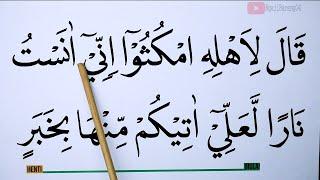 قَالَ لِاَهْلِهِ امْكُثُوْٓا اِنِّيْٓ اٰنَسْتُ
نَارًا لَّعَلِّيْٓ اٰتِيْكُمْ مِّنْهَا بِخَبَرٍ
HENTI